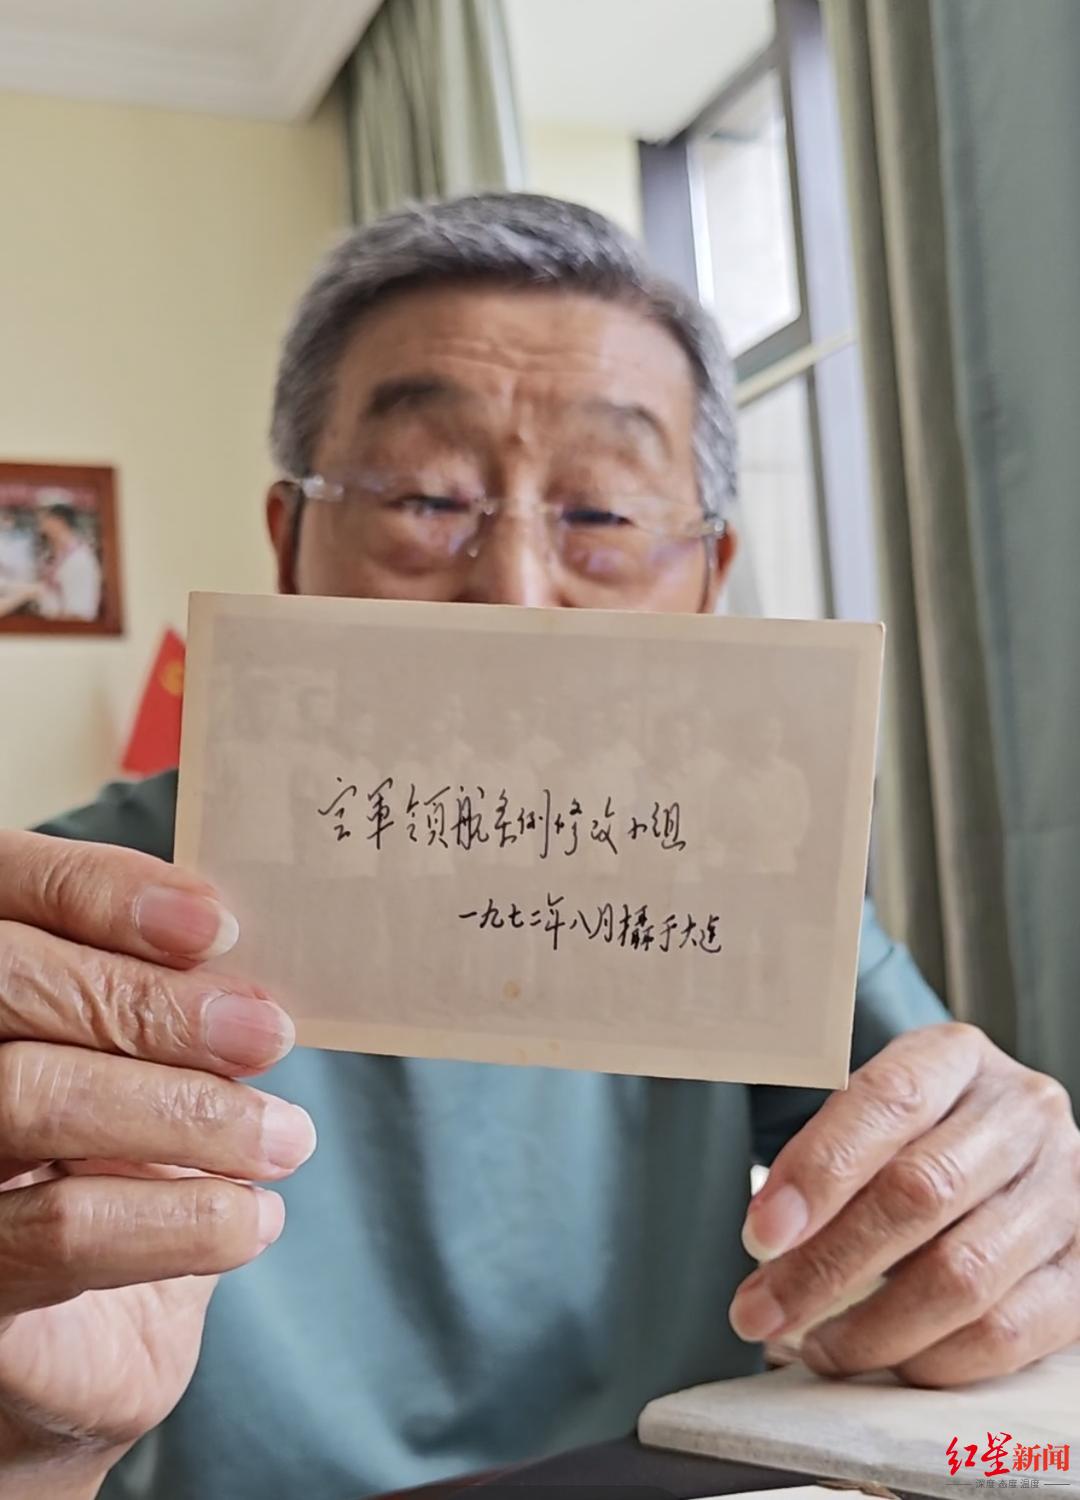 空軍領航条例修改小组
一九七二年八月攝于大连
红星新闻
深度 态度 温度